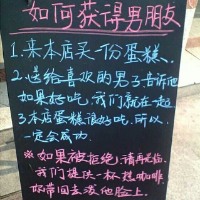 如何获得男朋友
1.来本店买一份蛋糕、
2.送给喜欢的男子告诉他
如果好吃，我们就在一起
3本店蛋糕很好吃，所以
一定会成功
※如果被拒绝，请再光临、
我们提供一杯挂咖啡
好带回去泼他脸上.